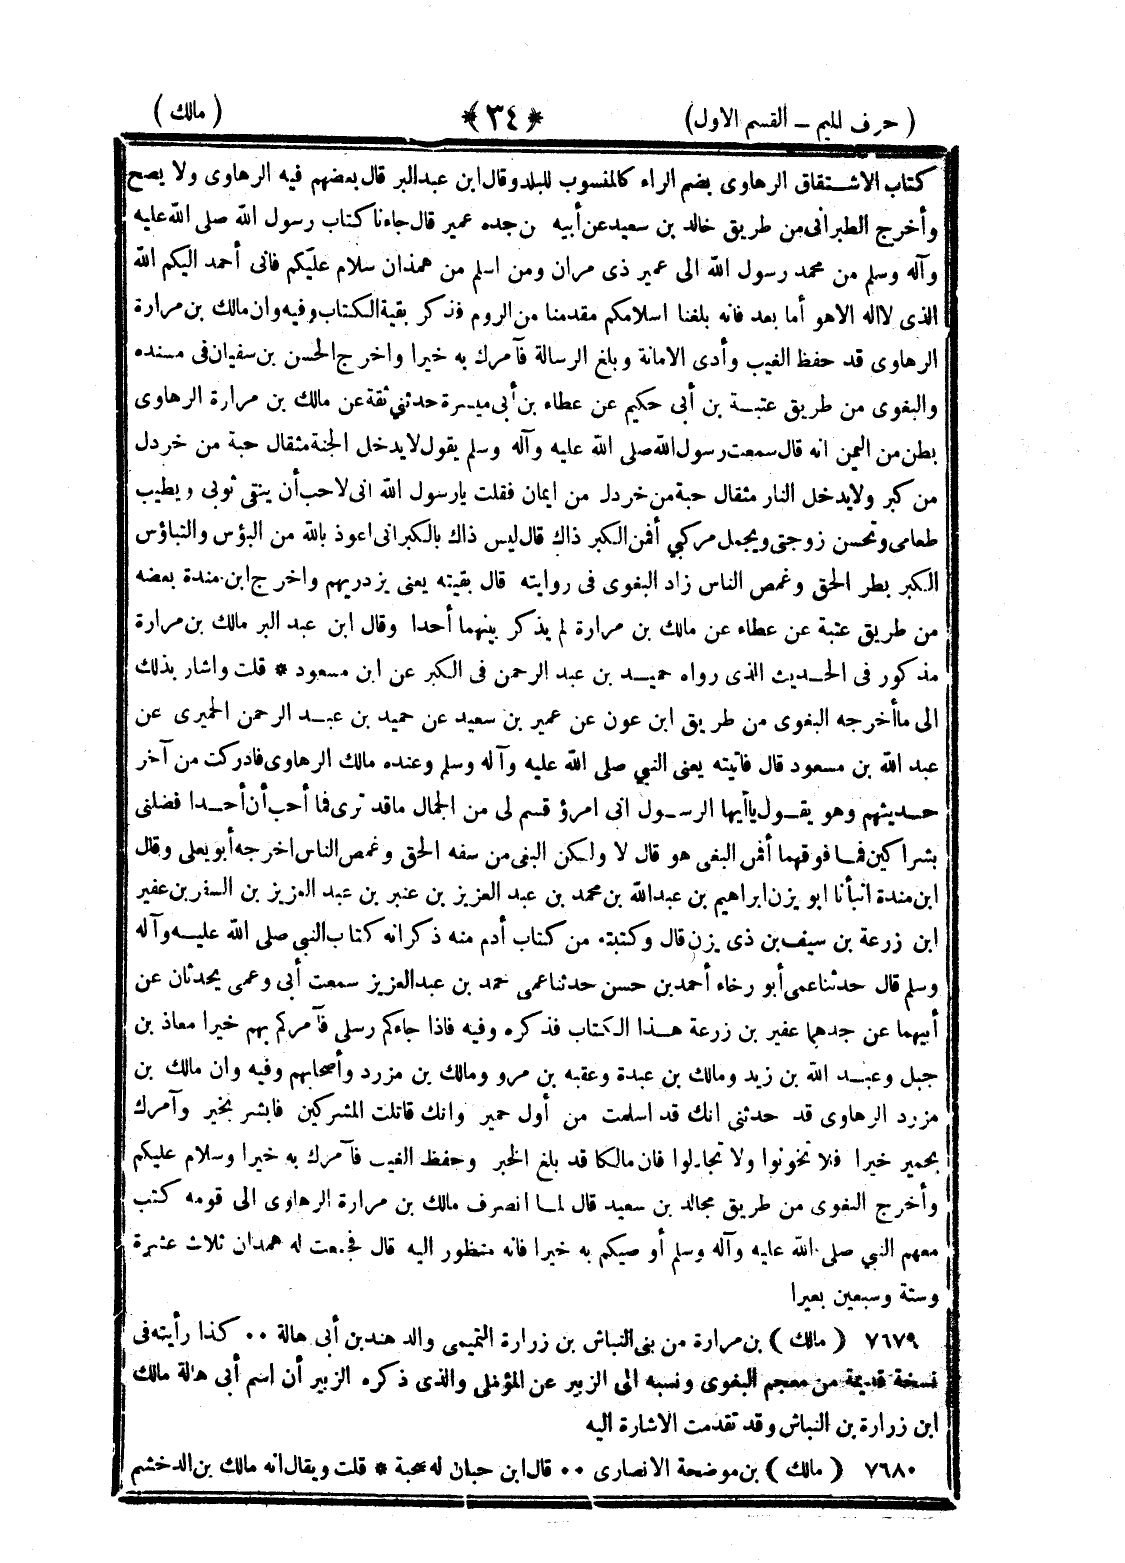 ( حرف الميم – القسم الاول) ﴿٣٤﴾ ( مالك )
كتاب الاشتقاق الرهاوى بضم الراء كالمنسوب للبلد وقال ابن عبد البر قال بعضهم فيه الرهاوى ولا يصح
وأخرج الطبرانى من طريق خالد بن سعيد عن أبيه ن جده عمير قال جاءنا كتاب رسول الله صلى الله عليه
وآله وسلم من محمد رسول الله الى عمير ذى مران ومن اسلم من همذان سلام عليكم فانى أحمد اليكم الله
الذى لااله الاهو أما بعد فانه بلغنا اسلامكم مقدمنا من الروم فذكر بقية الكتاب وفيه وان مالك بن مرارة
الرهاوى قد حفظ الغيب وأدى الامانة وبلغ الرسالة فآمرك به خيرا واخرج الحسن بن سفيان فى مسنده
والبغوى من طريق عتبة بن أبى حكيم عن عطاء بن أبى ميسرة حدثني ثقة عن مالك بن مرارة الرهاوى
بطن من اليمن انه قال سمعت رسول الله صلى الله عليه وآله وسلم يقول لايدخل الجنة مثقال حبة من خردل
من كبر ولايدخل النار مثقال حبة من خردل من ايمان فقلت يارسول الله انى لاحب أن ينقى ثوبى ويطيب
طعامى وتحسن زوجتى ويجمل مركبي أفمن الكبر ذاك قال ليس ذاك بالكبر انى اعوذ بالله من البؤس والتباؤس
الكبر بطر الحق وغمص الناس زاد البغوى فى روايته قال بقيته يعنى يزدريهم واخرج ابن مندة بعضه
من طريق عتبة عن عطاء عن مالك بن مرارة لم يذكر بينهما أحدا وقال ابن عبد البر مالك بن مرارة
مذكور فى الحديث الذى رواه حميد بن عبد الرحمن فى الكبر عن ابن مسعود * قلت واشار بذلك
الى ماأخرجه البغوى من طريق ابن عون عن عمير بن سعيد عن حميد بن عبد الرحمن الحميرى عن
عبد الله بن مسعود قال فاتيته يعنى النبي صلى الله عليه وآله وسلم وعنده مالك الرهاوى فادركت من آخر
حديثهم وهو يقول ياأيها الرسول انى امرؤ قسم لى من الجمال ماقد ترى فما أحب أن أحدا فضلنى
بشراكين فما فوقهما أفمن البغى هو قال لا ولكن البغى من سفه الحق وغمص الناس اخرجه أبو يعلى وقال
ابن مندة انبأنا ابو يزن ابراهيم بن عبد الله بن محمد بن عبد العزيز بن عنبر بن عبد العزيز بن السفر بن عفير
ابن زرعة بن سيف بن ذى يزن قال وكتبته من كتاب أدم منه ذكر انه كتاب النبي صلى الله عليه وآله
وسلم قال حدثنا عمى أبو رخاء أحمد بن حسن حدثنا عمى حمد بن عبد العزيز سمعت أبى وعمى يحدثان عن
أبيهما عن جدهما عفير بن زرعة هذا الكتاب فذكره وفيه فاذا جاءكم رسلى فآمركم بهم خيرا معاذ بن
جبل وعبد الله بن زيد ومالك بن عبدة وعقبه بن مرو ومالك بن مزرد وأصحابهم وفيه وان مالك بن
مزرد الرهاوى قد حدثنى انك قد اسلمت من أول حمير وانك قاتلت المشركين فابشر بخير وآمرك
بحمير خيرا فلا تخونوا ولا تجادلوا فان مالكا قد بلغ الخبر وحفظ الغيب فآمرك به خيرا وسلام عليكم
وأخرج البغوى من طريق مجالد بن سعيد قال لما انصرف مالك بن مرارة الرهاوى الى قومه كتب
معهم النبي صلى الله عليه وآله وسلم أوصيكم به خيرا فانه منظور اليه قال فجمعت له همدان ثلاث عشرة
وستة وسبعين بعيرا
٧٦٧٩ ( مالك ) بن مرارة من بنى النباش بن زرارة التميمى والد هند بن أبى هالة ٠٠ كذا رأيته فى
نسخة قديمة من معجم البغوى ونسبه الى الزبير عن المؤملى والذى ذكره الزبير أن اسم أبى هالة مالك
ابن زرارة بن النباش وقد تقدمت الاشارة اليه
٧٦٨٠ ( مالك ) بن موضحة الانصارى ٠٠ قال ابن حبان له صحبة * قلت ويقال انه مالك بن الدخشم